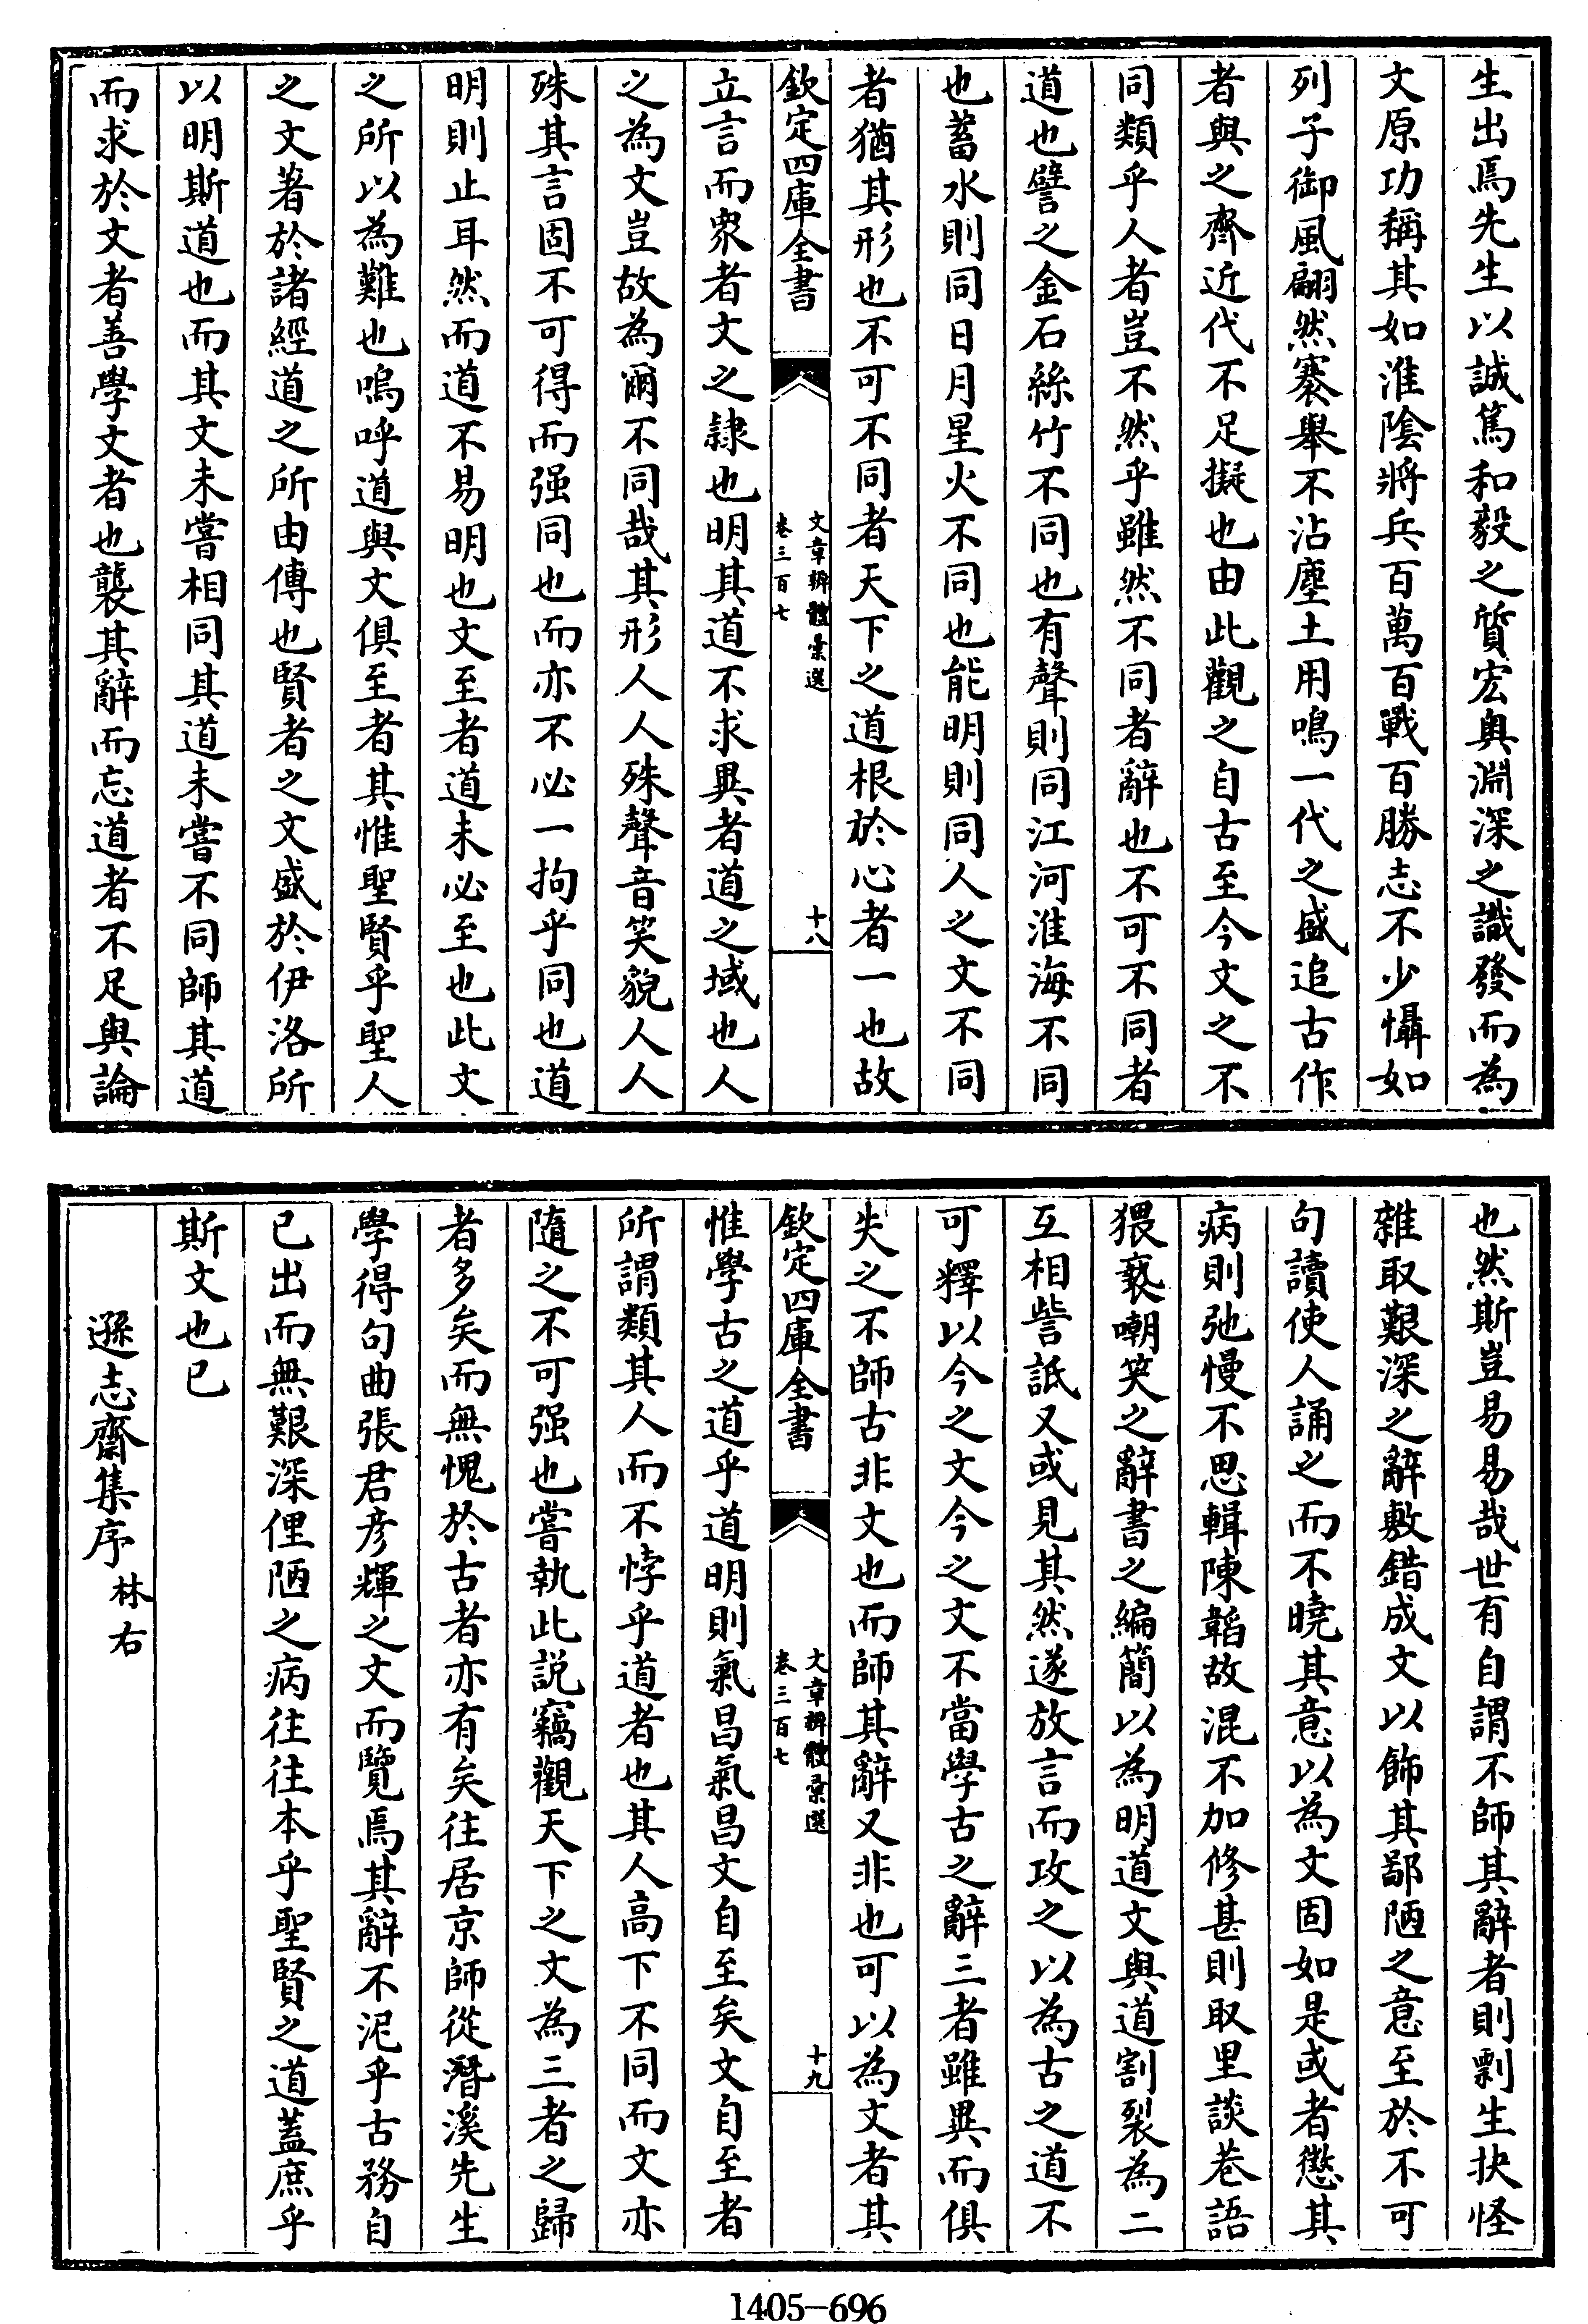 生出焉先生以誠篤和毅之質宏奥淵深之識發而為
文原功稱其如淮陰將兵百萬百戰百勝志不少懾如
列子御風翩然褰舉不沾塵土用鳴一代之盛追古作
者與之齊近代不足擬也由此觀之自古至今文之不
同類乎人者豈不然乎雖然不同者辭也不可不同者
道也譬之金石絲竹不同也有聲則同江河淮海不同
也蓄水則同日月星火不同也能明則同人之文不同
者猶其形也不可不同者天下之道根於心者一也故
欽定四庫全書
文章辨體彙選
卷三百七
十八
立言而衆者文之隷也明其道不求異者道之域也人
之為文豈故為爾不同哉其形人人殊聲音笑貌人人
殊其言固不可得而强同也而亦不必一拘乎同也道
明則止耳然而道不易明也文至者道未必至也此文
之所以為難也嗚呼道與文俱至者其惟聖賢乎聖人
之文著於諸經道之所由傳也賢者之文盛於伊洛所
以明斯道也而其文未嘗相同其道未嘗不同師其道
而求於文者善學文者也襲其辭而忘道者不足與論
也然斯豈易易哉世有自謂不師其辭者則剽生抉怪
雜取艱深之辭敷錯成文以飾其鄙陋之意至於不可
句讀使人誦之而不曉其意以為文固如是或者懲其
病則弛慢不思輯陳韜故混不加修甚則取里談巷語
猥褻嘲笑之辭書之編簡以為明道文與道割裂為二
互相訾詆又或見其然遂放言而攻之以為古之道不
可釋以今之文今之文不當學古之辭三者雖異而俱
失之不師古非文也而師其辭又非也可以為文者其
欽定四庫全書
文章辨體彙選
卷三百七
十九
惟學古之道乎道明則氣昌氣昌文自至矣文自至者
所謂類其人而不悖乎道者也其人高下不同而文亦
隨之不可强也嘗執此説竊觀天下之文為三者之歸
者多矣而無愧於古者亦有矣往居京師從潛溪先生
學得句曲張君彦輝之文而覽焉其辭不泥乎古務自
已出而無艱深俚陋之病往往本乎聖賢之道蓋庶乎
斯文也已
遜志齋集序 林右
1405-696